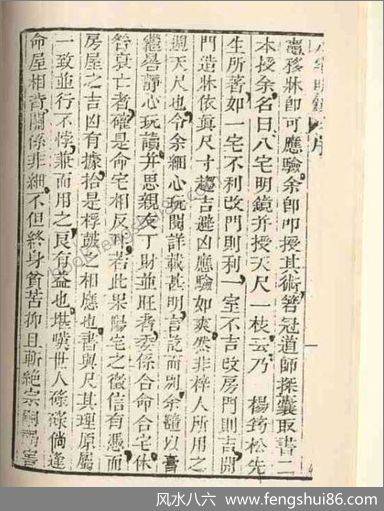 八宅明鏡 序
應移牀卽可應驗余卽叩授其術箬冠道師探囊取書二
本授余名曰八宅明鏡并授天尺一枝云乃 楊筠松先
生所著如一宅不利改門則利一室不吉改房門則吉開
門造牀依眞尺寸趨吉避凶應驗如爽然非梓人所用之
週天尺也令余細心玩閱詳載甚明言訖而別余隨以書
繼晷靜心玩讀并思親友丁財並旺者委係合命合宅休
咎衰亡者確是命宅相反所若此果陽宅之徵信有憑而
房屋之吉凶有據拾是桴鼓之相應也書與尺其理原屬
一致並行不悖兼而用之艮有益也堪嘆世人碌碌倘逢
命屋相背關係非細不但終身貧苦抑且斬絶宗嗣
风水八六 www.fengshui86.com